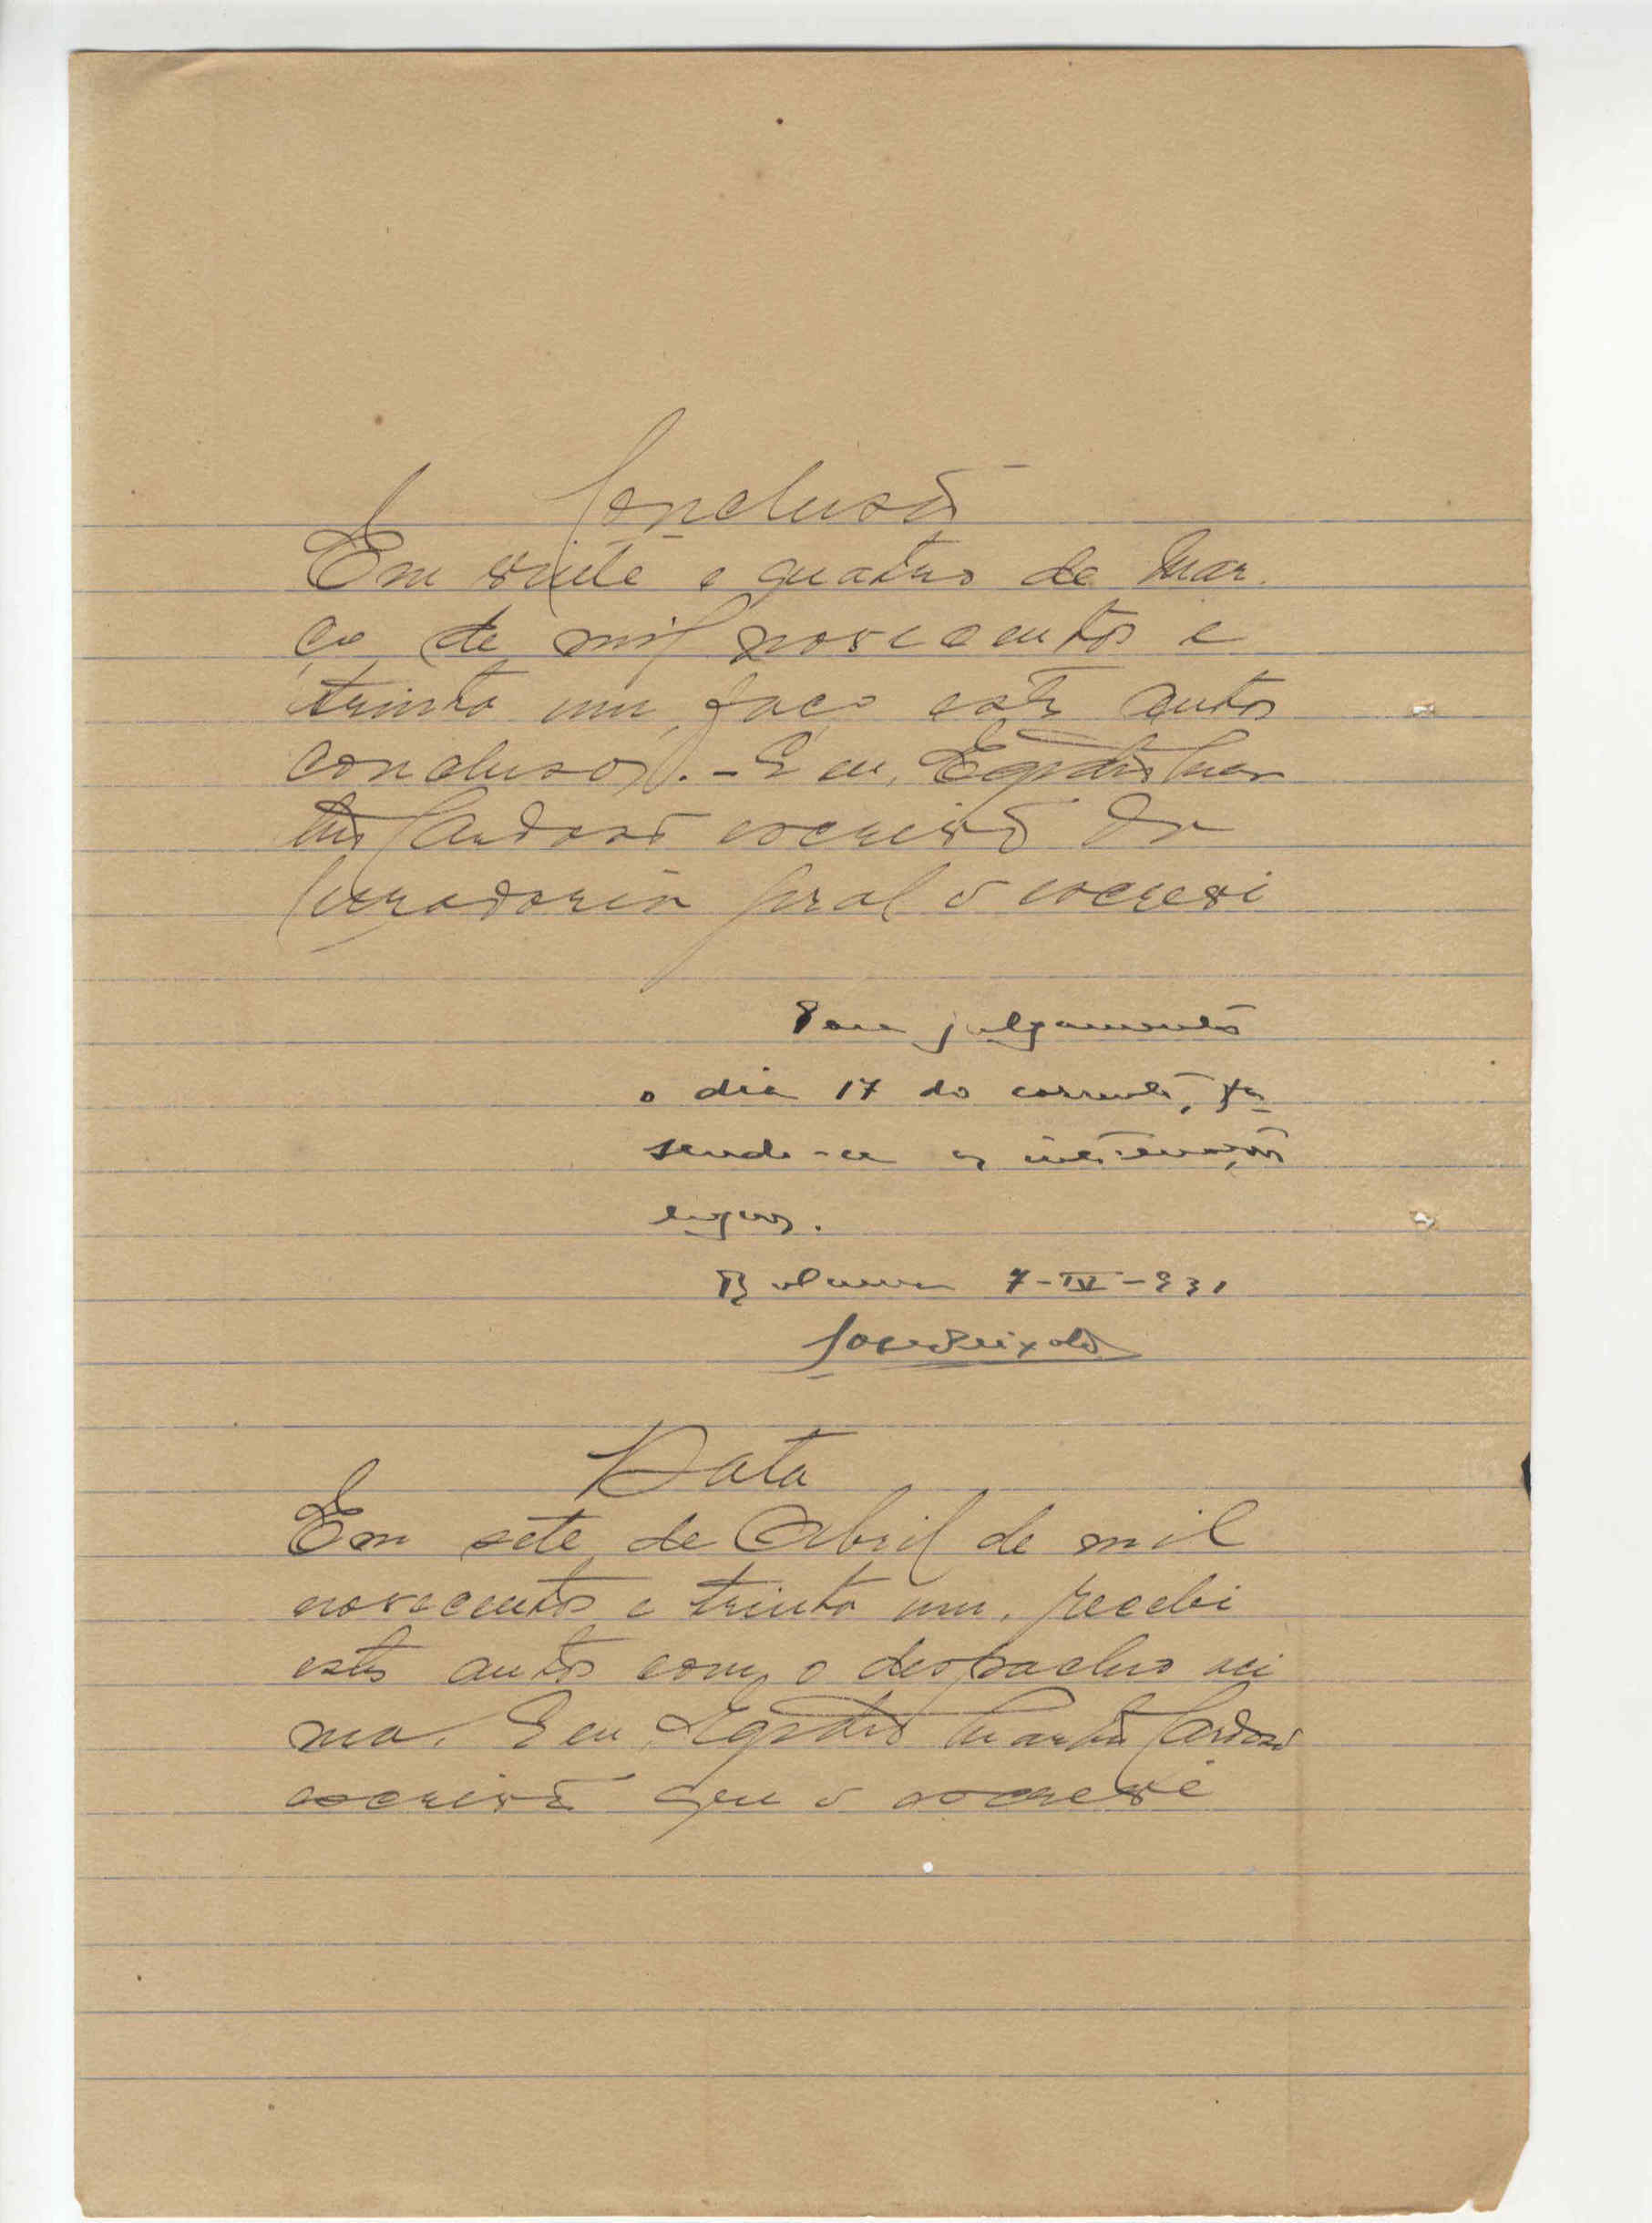 Conclusão
Em vinte e quatro de Mar
ço de mil novecentos e
trinta um faço estes autos
conclusos. - E eu, Egidio Mar
tins Cardoso escrivão da
Curadoria Geral o escrevi
Para julgamento
o dia 17 do corrente, fa
zendo-se as intimações
legaes.
Bolama 7-IV-931
Data
Em sete de Abril de mil
novecentos e trinta um. recebi
estes autos com o despacho aci
ma. E eu Egidio Martins Cardoso
escrivão que o escrevi